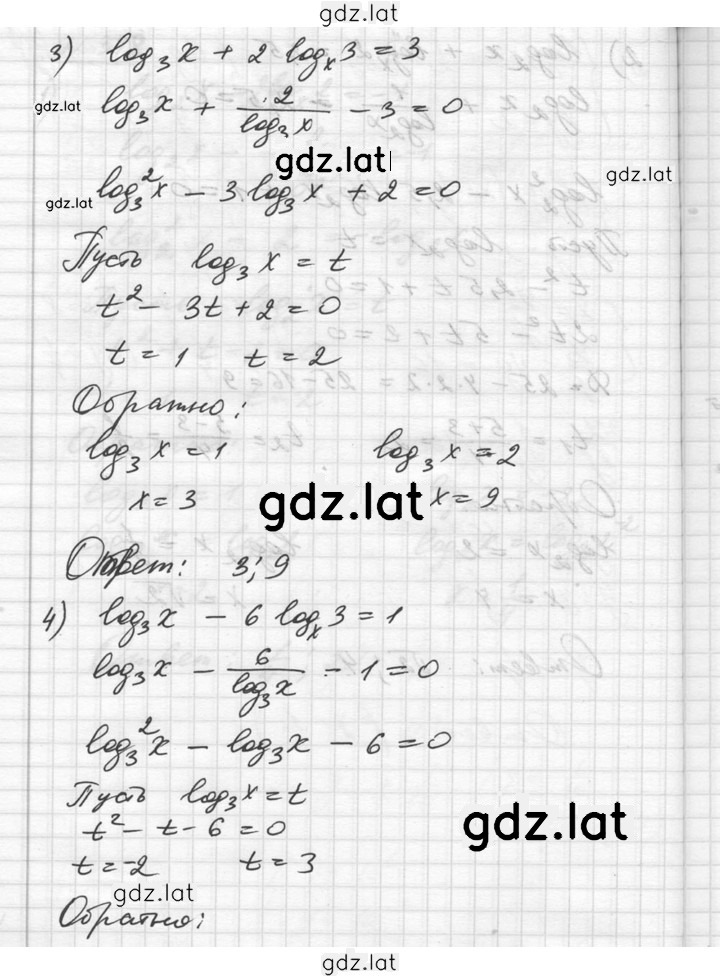 gdz.lat
3) log₃x + 2 logₓ3 = 3
gdz.lat log₃x + 2/log₃x - 3 = 0
gdz.lat
gdz.lat
gdz.lat log₃²x - 3 log₃x + 2 = 0
Пусть log₃x = t
t² - 3t + 2 = 0
t = 1 t = 2
Обратно:
log₃x = 1 log₃x = 2
x = 3 gdz.lat x = 9
Ответ: 3; 9
4) log₃x - 6 logₓ3 = 1
log₃x - 6/log₃x - 1 = 0
log₃²x - log₃x - 6 = 0
Пусть log₃x = t
t² - t - 6 = 0 gdz.lat
t = -2 t = 3
gdz.lat
Обратно:
gdz.lat